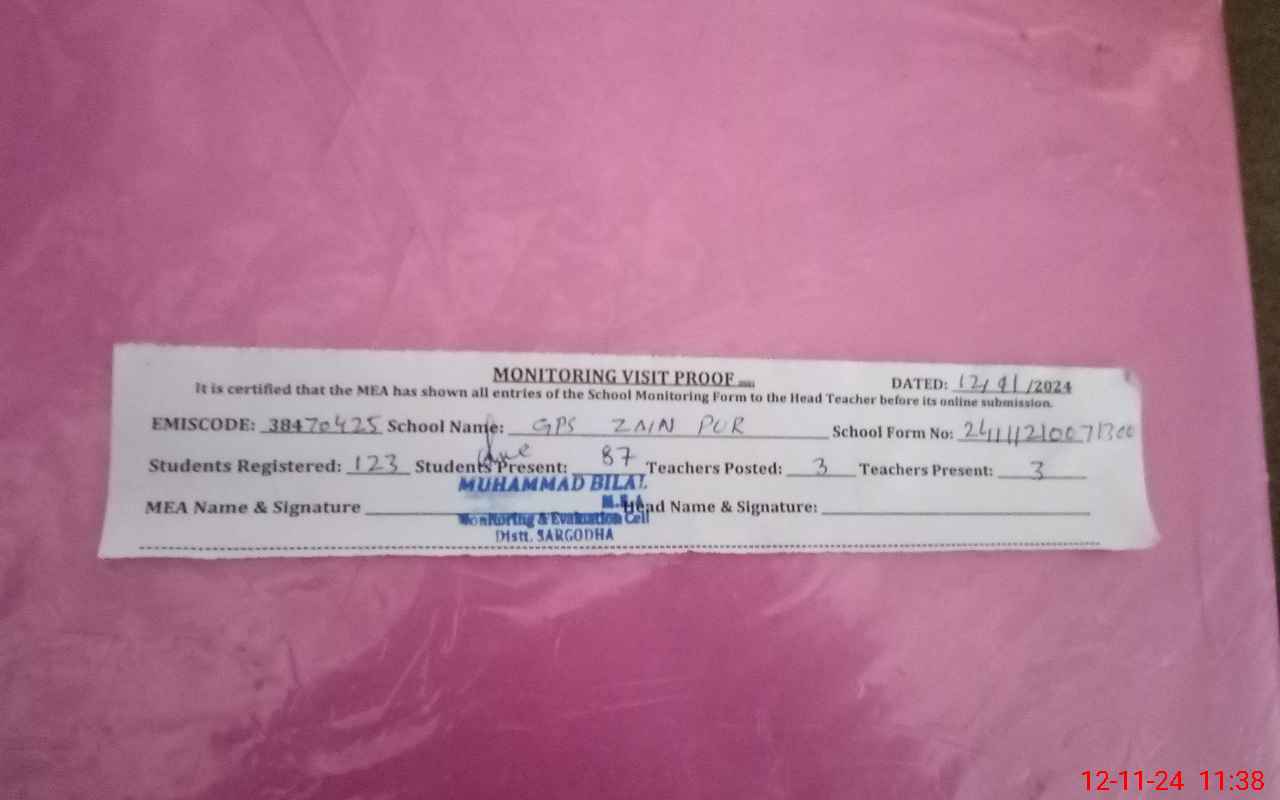 MONITORING VISIT PROOF
DATED: 12/11/2024
It is certified that the MEA has shown all entries of the School Monitoring Form to the Head Teacher before its online submission.
EMISCODE: 38470425 School Name: GPS ZAIN PUR School Form No:
Students Registered: 123 Students Present: 87 Teachers Posted: 3 Teachers Present: 3
MUHAMMAD BILAL
M.E.A
MEA Name & Signature Head Name & Signature:
Monitoring & Evaluation Cell
Distt. SARGODHA
12-11-24 11:38